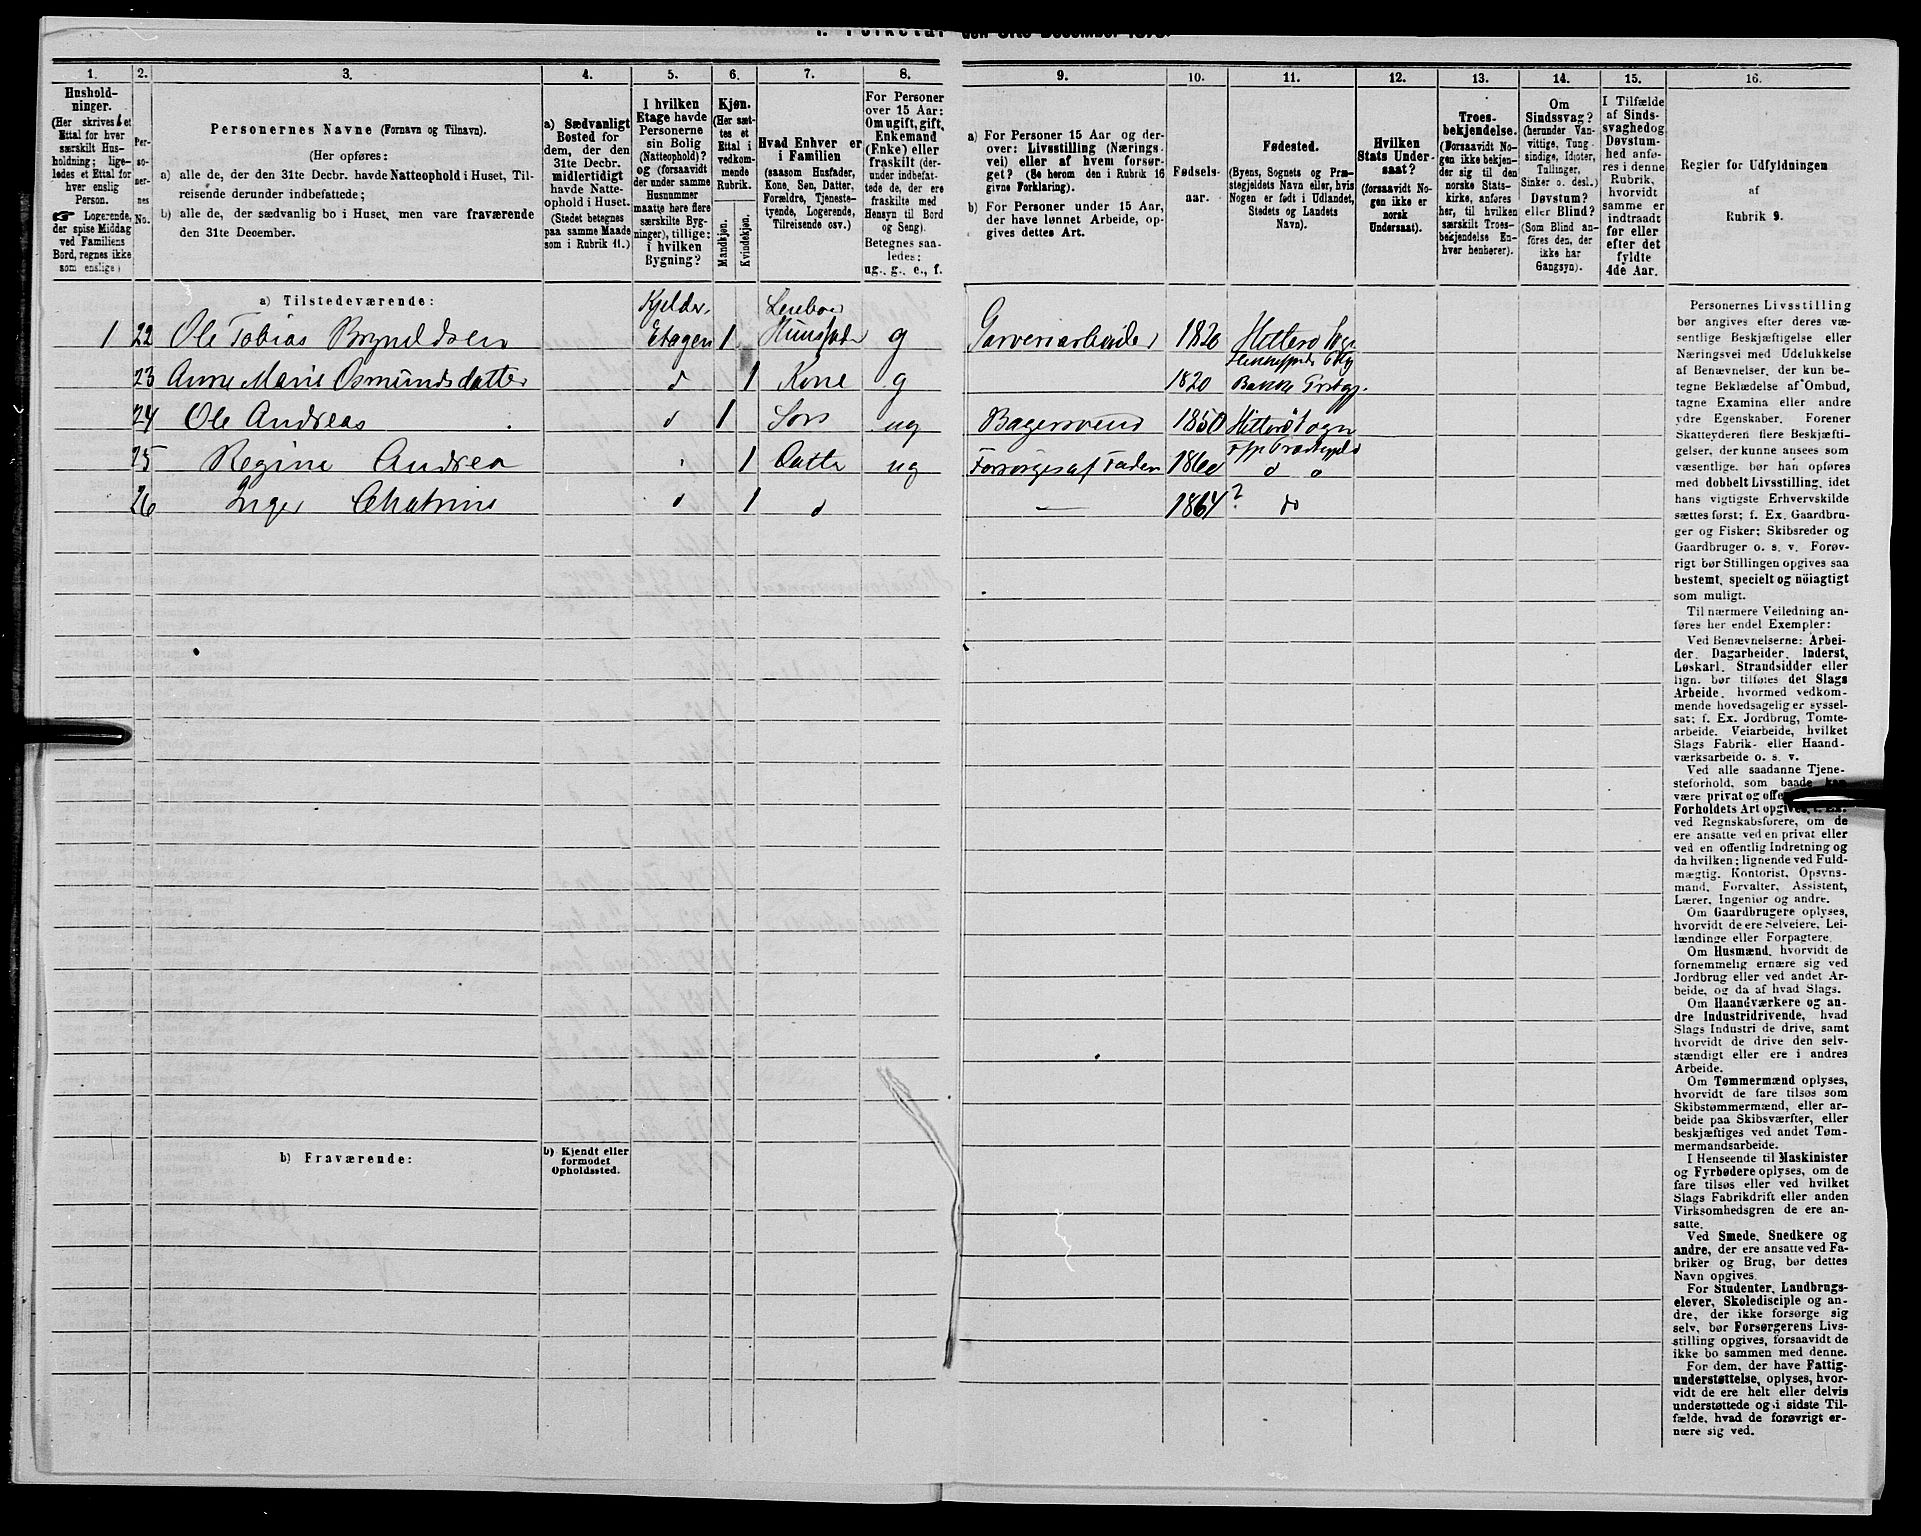 1. Folketal den 31te December 1875.
1.
2.
3.
4.
5.
6.
7.
8.
Hushold-
ninger.
(Her skrives et
Ettal for hver
særskilt Hus-
holdning; lige-
ledes et Ettal for
hver enslig
Person.
☞ Logerende,
der spise Middag
ved Familiens
Bord, regnes ikke
som enslige)
Per-
so-
ner-
nes
No.
Personernes Navne (Fornavn og Tilnavn).
(Her opføres:
a) alle de, der den 31te Decbr. havde Natteophold i Huset, Til-
reisende derunder indbefattede;
b) alle de, der sædvanlig bo i Huset, men vare fraværende
den 31te December.
a) Sædvanligt
Bosted for
dem, der den
31te Decbr.
midlertidigt
havde Natte-
ophold i Huset.
(Stedet betegnes
paa samme Maade
som i Rubrik 11.)
I hvilken
Etage havde
Personerne
sin Bolig
(Natteophold)?
og (forsaavidt
der under samme
Husnummer
maatte høre flere
særskilte Byg-
ninger), tillige:
i hvilken
Bygning?
Kjøn.
(Her sæt-
tes et
Ettal i
vedkom-
mende
Rubrik.
Mandkjøn.
Kvindekjøn.
Hvad Enhver er
i Familien
(saasom Husfader,
Kone, Søn, Datter,
Forældre, Tjeneste-
tyende, Logerende,
Tilreisende osv.)
For Personer
over 15 Aar:
Om ugift, gift,
Enkemand
(Enke) eller
fraskilt (der-
under indbefat-
tede de, der ere
fraskilte med
Hensyn til Bord
og Seng).
Betegnes saa-
ledes:
ug., g., e., f.
a) Tilstedeværende:
Kjelder-
1 22 Ole Tobias Bryneldsen Etagen 1 Huusfader g
23 Anne Marie Osmundsdatter d 1 Kone g
24 Ole Andreas d 1 Søn ug
25 Regine Andrea 1 Datter ug
26 Inger Chatrine d 1 d
b) Fraværende:
b) Kjendt eller
formodet
Opholdssted.
9.
10.
11.
12.
13.
14.
15.
16.
a) For Personer 15 Aar og der-
over: Livsstilling (Nærings-
vei) eller af hvem forsør-
get? (Se herom den i Rubrik 16
givne Forklaring).
b) For Personer under 15 Aar,
der have lønnet Arbeide, op-
gives dettes Art.
Fødsels-
aar.
Fødested.
(Byens, Sognets og Præ-
stegjeldets Navn eller, hvis
Nogen er født i Udlandet,
Stedets og Landets
Navn).
Hvilken
Stats Under-
saat?
(forsaavidt No-
gen ikke er
norsk
Undersaat).
Troes-
bekjendelse.
(Forsaavidt No-
gen ikke bekjen-
der sig til den
norske Stats-
kirke, anføres
her, til hvilken
særskilt Troes-
bekjendelse En-
hver henhører).
Om
Sindssvag?
(herunder Van-
vittige, Tung-
sindige, Idioter,
Tullinger,
Sinker o. desl.)
Døvstum?
eller Blind?
(Som Blind an-
føres den, der
ikke har
Gangsyn).
I Tilfælde
af Sinds-
svaghed og
Døvstum-
hed anfø-
res i denne
Rubrik,
hvorvidt
samme er
indtraadt
før eller
efter det
fyldte
4de Aar.
Regler for Udfyldningen
af
Rubrik 9.
Garveriarbeider 1826 Hitterø Sogn
1820
Bagersvend 1850 Hitterø Sogn
Forsørges af Faderen 1860 d o
— 1864? do
Personernes Livsstilling
bør angives efter deres væ-
sentlige Beskjæftigelse eller
Næringsvei med Udelukkelse
af Benævnelser, der kun be-
tegne Beklædelse af Ombud,
tagne Examina eller andre
ydre Egenskaber. Forener
Skatteyderen flere Beskjæfti-
gelser, der kunne ansees som
væsentlige, bør han opføres
med dobbelt Livsstilling, idet
hans vigtigste Erhvervskilde
sættes først; f. Ex. Gaardbru-
ger og Fisker; Skibsreder og
Gaardbruger o. s. v. Forøv-
rigt bør Stillingen opgives saa
bestemt, specielt og nöiagtigt
som muligt.
Til nærmere Veiledning an-
føres her endel Exempler:
Ved Benævnelserne: Arbei-
der, Dagarbeider, Inderst,
Løskarl, Strandsidder eller
lign. bør tilføies det Slags
Arbeide, hvormed vedkom-
mende hovedsagelig er syssel-
sat; f. Ex. Jordbrug, Tomte-
arbeide, Veiarbeide, hvilket
Slags Fabrik- eller Haand-
værksarbeide o. s. v.
Ved alle saadanne Tjene-
steforhold, som baade kan
være privat og offe
Forholdets Art opgives, f. Ex.
ved Regnskabsførere, om de
ere ansatte ved en privat eller
ved en offentlig Indretning og
da hvilken; lignende ved Fuld-
mægtig, Kontorist, Opsyns-
mand, Forvalter, Assistent,
Lærer, Ingeniør og andre.
Om Gaardbrugere oplyses,
hvorvidt de ere Selveiere, Lei-
lændinge eller Forpagtere.
Om Husmænd, hvorvidt de
fornemmelig ernære sig ved
Jordbrug eller ved andet Ar-
beide, og da af hvad Slags.
Om Haandværkere og an-
dre Industridrivende, hvad
Slags Industri de drive, samt
hvorvidt de drive den selv-
stændigt eller ere i andres
Arbeide.
Om Tømmermænd oplyses,
hvorvidt de fare tilsøs som
Skibstømmermænd, eller ar-
beide paa Skibsværfter, eller
beskjæftiges ved andet Tøm-
mermandsarbeide.
I Henseende til Maskinister
og Fyrbødere oplyses, om de
fare tilsøs eller ved hvilket
Slags Fabrikdrift eller anden
Virksomhedsgren de ere an-
satte.
Ved Smede, Snedkere og
andre, der ere ansatte ved Fa-
briker og Brug, bør dettes
Navn opgives.
For Studenter, Landbrugs-
elever, Skoledisciple og an-
dre, der ikke forsørge sig
selv, bør Forsørgerens Livs-
stilling opgives, forsaavidt de
ikke bo sammen med denne.
For dem, der have Fattig-
understøttelse, oplyses, hvor-
vidt de ere helt eller delvis
understøttede og i sidste Til-
fælde, hvad de forøvrigt er-
nære sig ved.